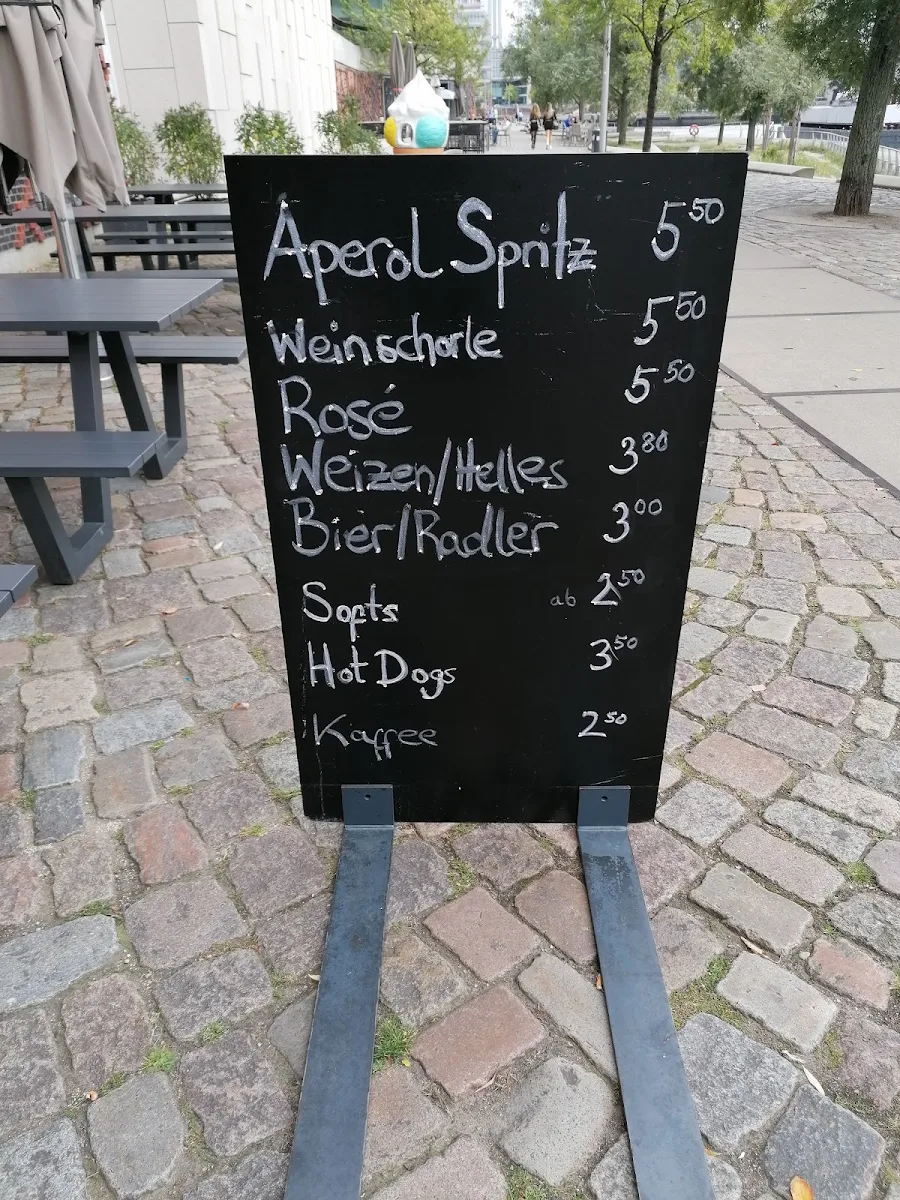 Aperol Spritz 5 50
Weinschorle 5 50
Rosé 5 50
Weizen/Helles 3 80
Bier/Radler 3 00
Softs ab 2 50
Hot Dogs 3 50
Kaffee 2 50